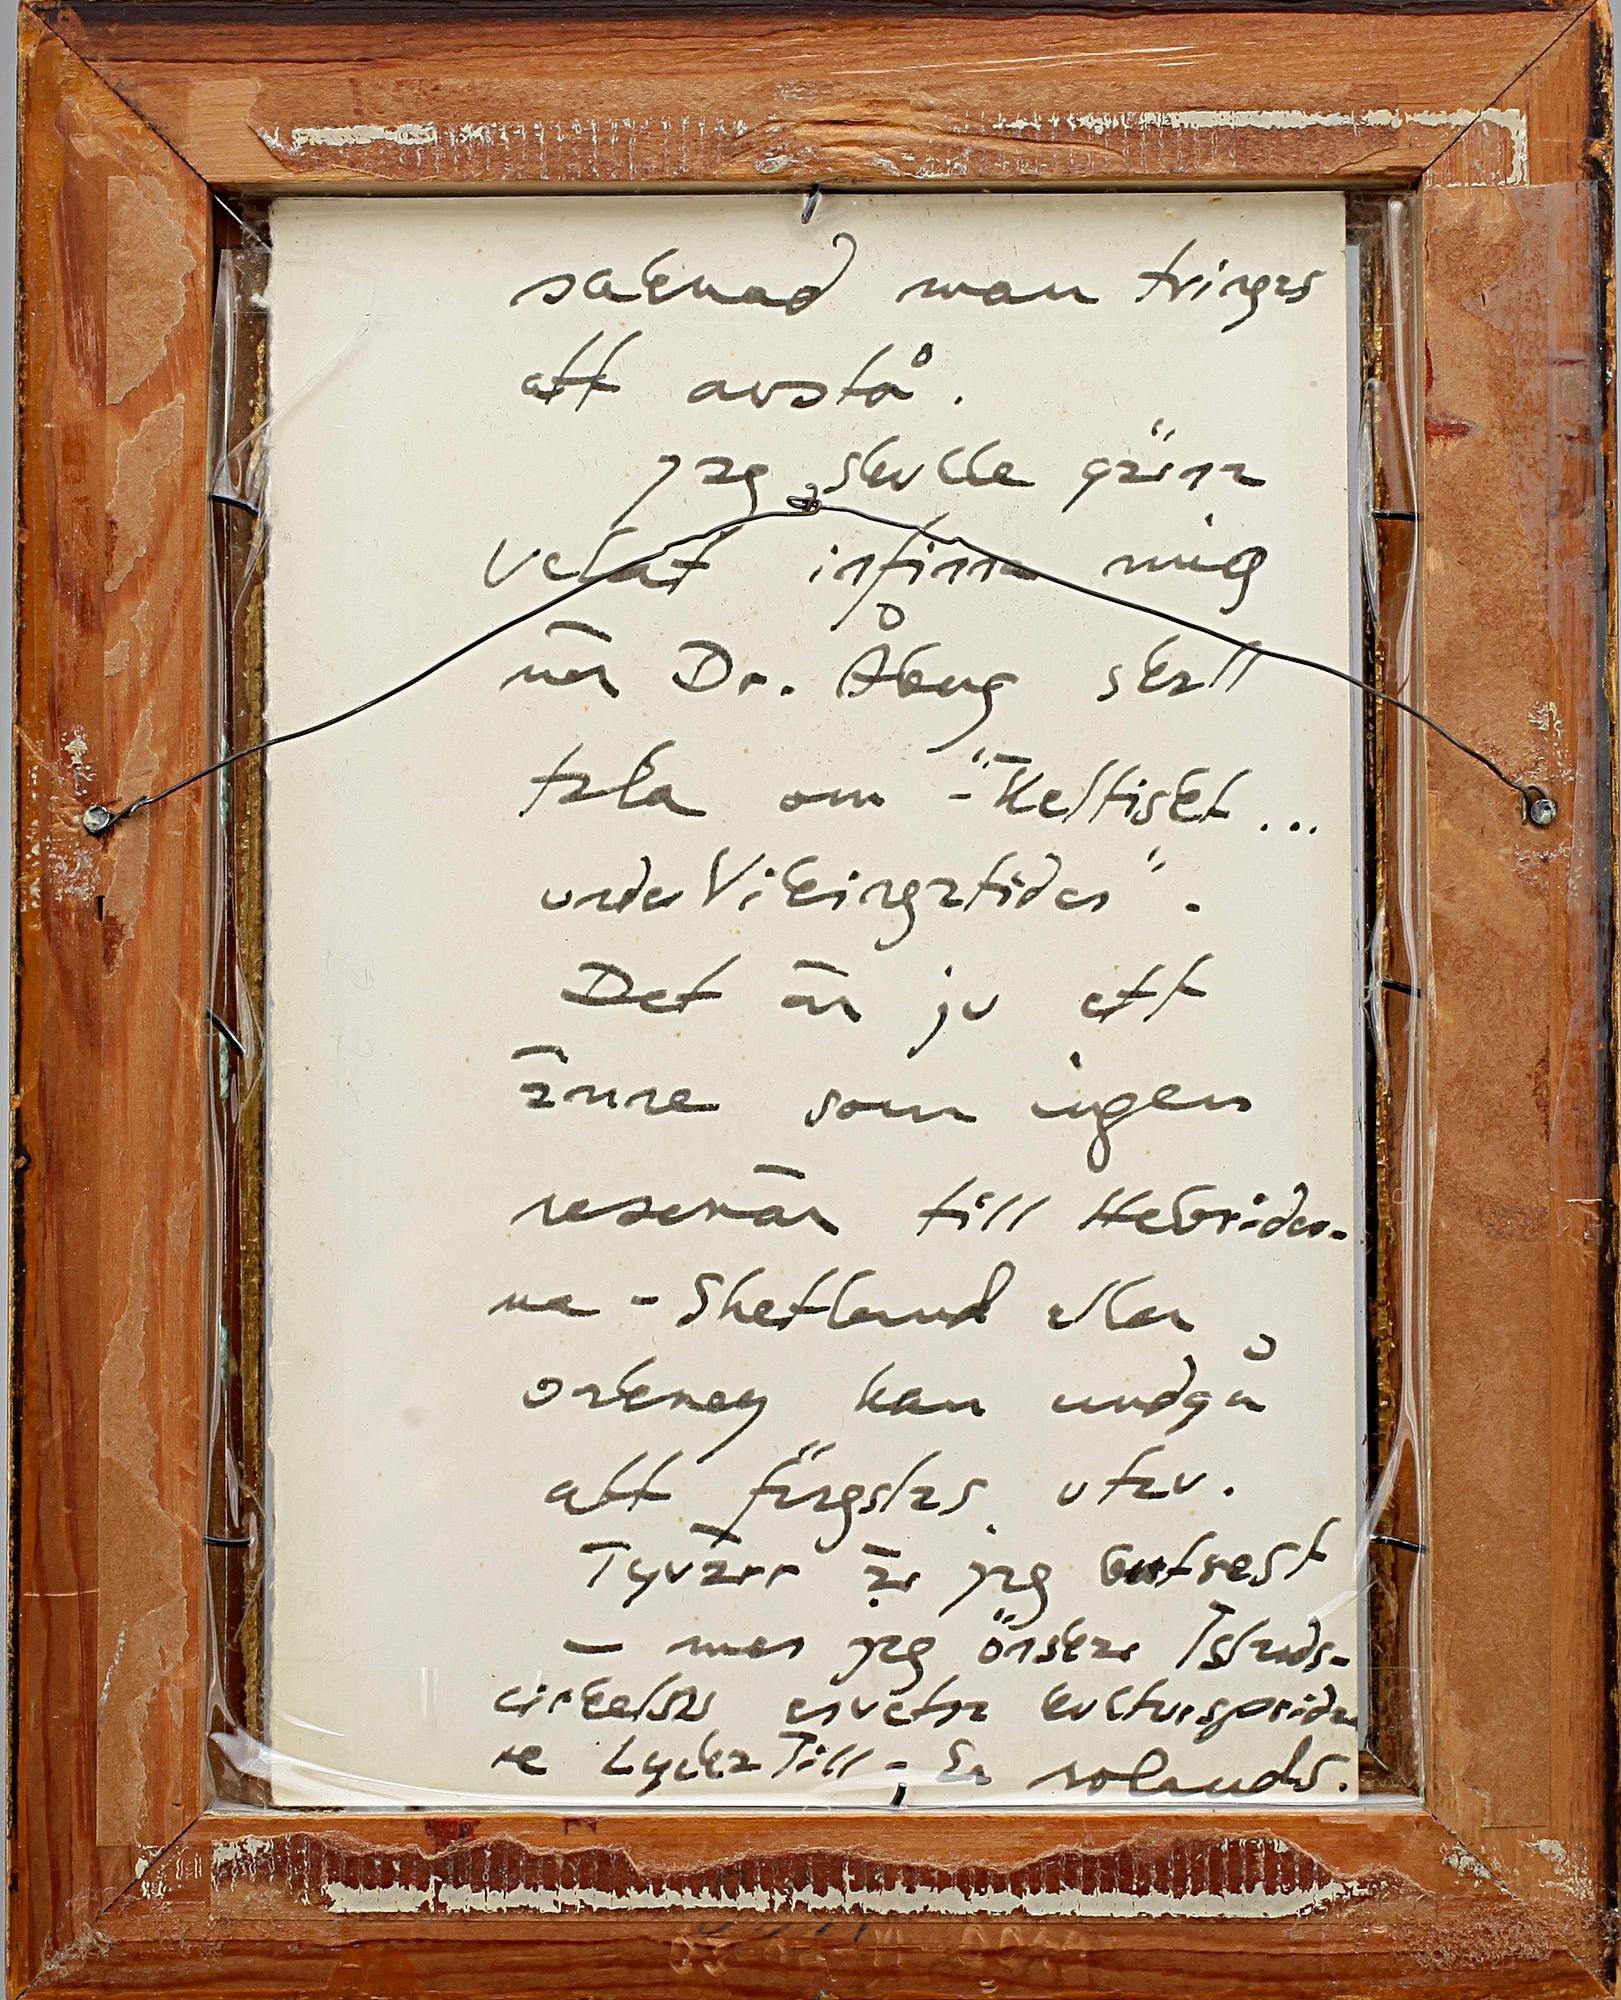 saknad man tvingas
att avstå.
Jag skulle gärna
velat infinna mig
när Dr. Åberg skall
tala om - "Keltiskt...
under Vikingatiden".
Det är ju ett
ämne som ingen
resenär till Hebrider-
na - Shetland eller
Orkeney kan undgå
att fängslas utav.
Tyvärr är jag bortrest
- men jag önskar Islands-
cirkelns
re Lycka Till - Er